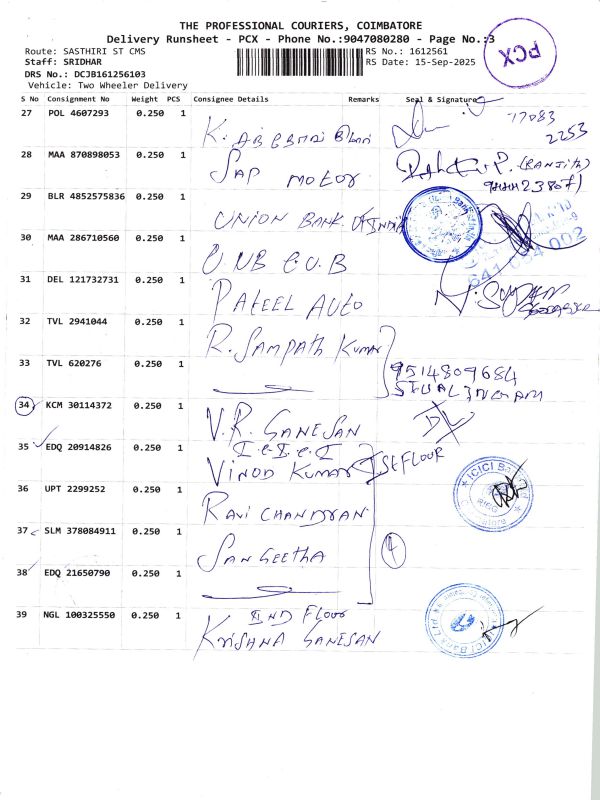 THE PROFESSIONAL COURIERS, COIMBATORE
Delivery Runsheet - PCX - Phone No.:9047080280 - Page No.:3
PCX
Route: SASTHIRI ST CMS RS No.: 1612561
Staff: SRIDHAR RS Date: 15-Sep-2025
DRS No.: DCJB161256103
Vehicle: Two Wheeler Delivery
S No Consignment No Weight PCS Consignee Details Remarks Seal & Signature
27 POL 4607293 0.250 1 K. 17083
2253
28 MAA 870898053 0.250 1 SAP MOTOR P. (RANJITH)
29 BLR 4852575836 0.250 1 UNION BANK OF INDIA
641 002
30 MAA 286710560 0.250 1 U.
31 DEL 121732731 0.250 1 PATEEL AUTO
32 TVL 2941044 0.250 1 R. SAMPATH KUMAR
33 TVL 620276 0.250 1 9514809684
SIVALINGAM
34 KCM 30114372 0.250 1 V.R. GANESAN DL
I.C.I.C.I
35 EDQ 20914826 0.250 1 VINOD KUMAR IST FLOOR
ICICI Bank Ltd
36 UPT 2299252 0.250 1 RAVI CHANDRAN
37 SLM 378084911 0.250 1 SANGEETHA 4
38 EDQ 21650790 0.250 1
39 NGL 100325550 0.250 1 IIND FLOOR
KRISANA GANESAN
ICICI Bank Ltd